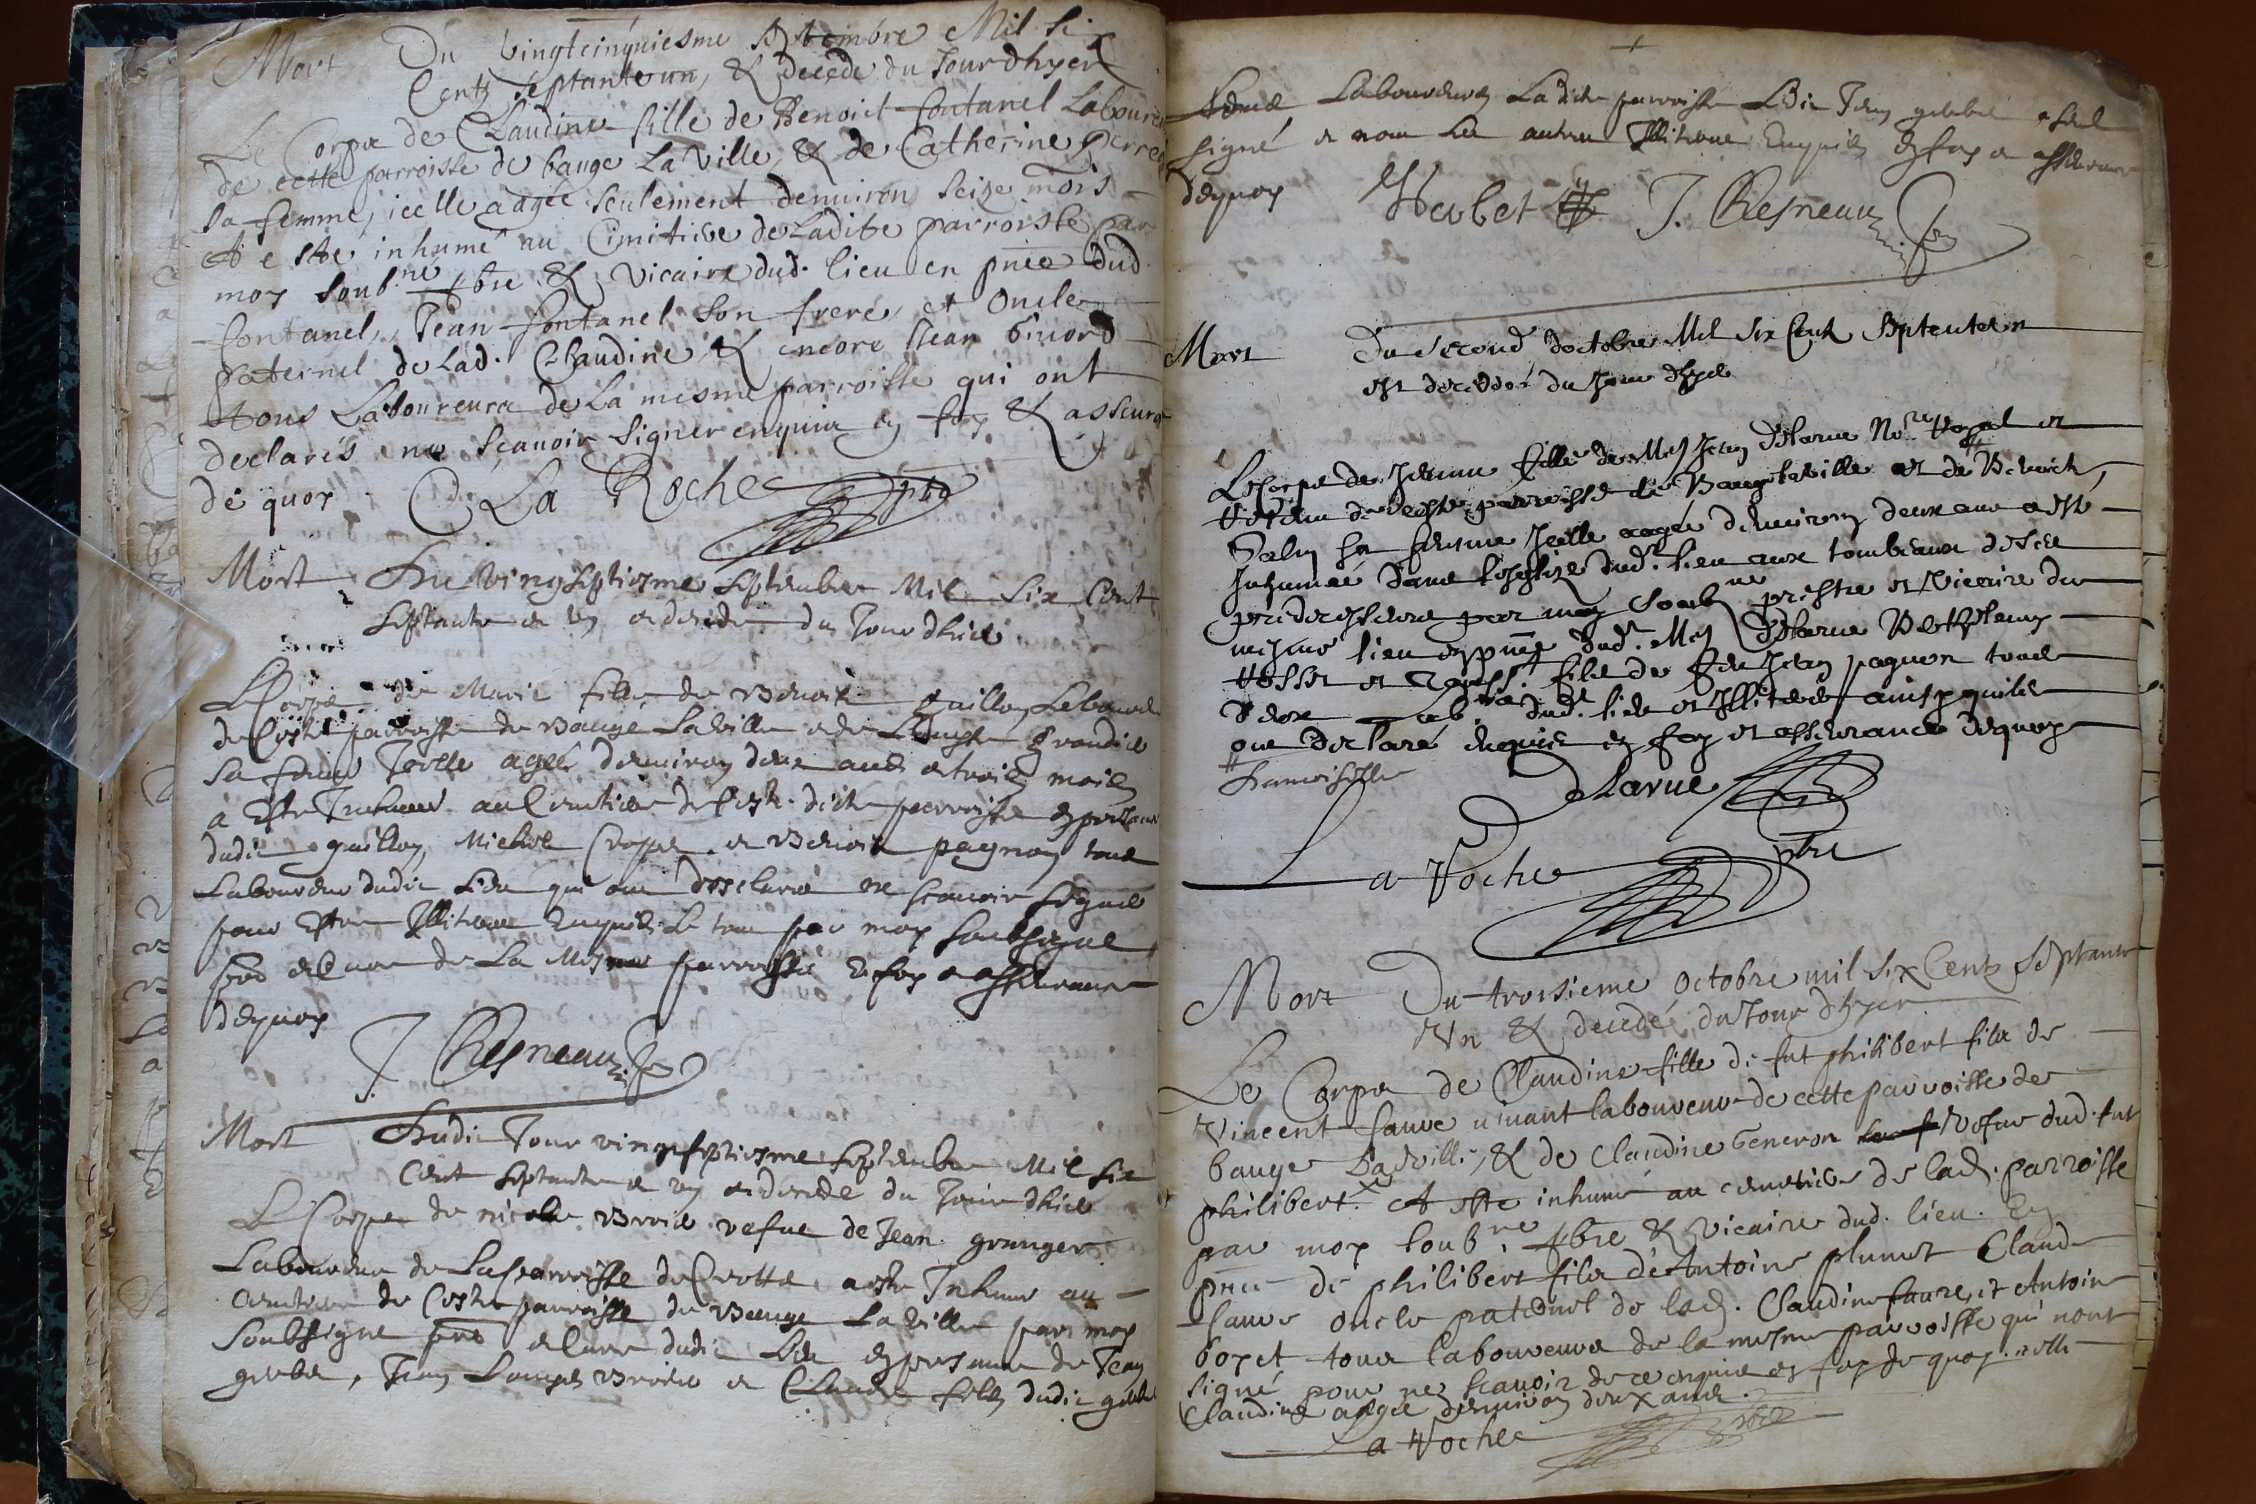 Mort Du vingtcinquiesme septembre Mil six
Cents septanteun, & decede du Jourdhyer
Le Corps de Claudine fille de Benoict fontanel Laboureur
de cette parroisse de bauge La ville, & de Catherine
sa femme, icelle aagée seulement denuiron seize mois
A esté inhumé au Cimitiere de Ladite parroisse par
moy soubné pbre & Vicaire dud. lieu en pñce dud.
fontanel, Jean fontanel son frere, et Oncle
paternel de Lad. Claudine, & encore Jean
tous Laboureurs de La mesme parroisse qui ont
declarés ne sçauoir signer enquis en foy & asseurance
de quoy De La Roche pbre
Mort Du vingseptiesme septembre Mil six Cent
septante et un et decede du Jour dhier
Le Corps de Marie fille de Benoist guillon Laboureur
de Ceste parroisse de Baugé Laville et de
sa femme Icelle agée denuiron deux ans et trois mois
a Esté Inhumé au Cemetiere de Ceste dicte parroisse en presence
dudit guillon, Michel et Benoist pagnon tous
Laboureurs dudit Lieu qui ont desclaré ne scauoir signer
pour Estre Illiteres Enquis Le tout par moy soubsigné
pbre et Cure de La Mesme parroisse En foy et asseurance
dequoy
J. Chesneau
Mort Dudit Jour vingtseptiesme septembre Mil six
Cent septante et un et decede du Jour dhier
Le Corps de nicole Broie vefue de Jean granger
Laboureur de La parroisse de Crotte a esté Inhumé au
Cemetiere de Ceste parroisse de Bauge La ville par moy
soubsigné pbre et Cure dudit Lieu en presence de Jean
gerbet, Jean et Claude fils dudit gerbet
Laboureurs La dicte parroisse Ledit Jean gerbet a seul
signé et non Les autres Illiteres Enquis En foy et asseurance
dequoy Herbet J. Chesneau
Mort Du second doctobre Mil six Cent septantevn
est decedée du Jour dhyer
Le Corps de Jeanne fille de Me Jean Delarue Nore Royal et
de ceste parroisse de Baugé laville et de Benoiste
sa femme Icelle aagée denuiron deux ans a esté
Inhumée dans leglize dud. lieu aux tombeaux de ses
predecesseurs par moy soubné prestre et Vicaire du
mesme lieu en pñce dud. Me Delarue
et fils de feu Jean pagnon tous
deux Labrs dud. lieu et Illiteres ainsy quils
ont declaré enquis en foy et asseurance dequoy
Delarue
La Roche pbre
Mort Du troisieme octobre mil six Cents septante
Vn & decedé du Jour dhyer
Le Corps de Claudine fille de fut philibert fils de
Vincent fauve viuant laboureur de cette parroisse de
bauge Laville, & de Claudine Generon vefue dud. fut
philibert. A esté inhumé au cemetiere de lad. parroisse
par moy soubné pbre & Vicaire dud. lieu. En
pñce de philibert fils de Antoine plumet Claude
fauve oncle paternel de lad. Claudine fauve, et Antoine
boyet tous laboureurs de la mesme parroisse qui nont
signé pour ne scauoir de ce enquis en foy de quoy. celle
Claudine aagée denuiron deux ans.
La Roche pbre